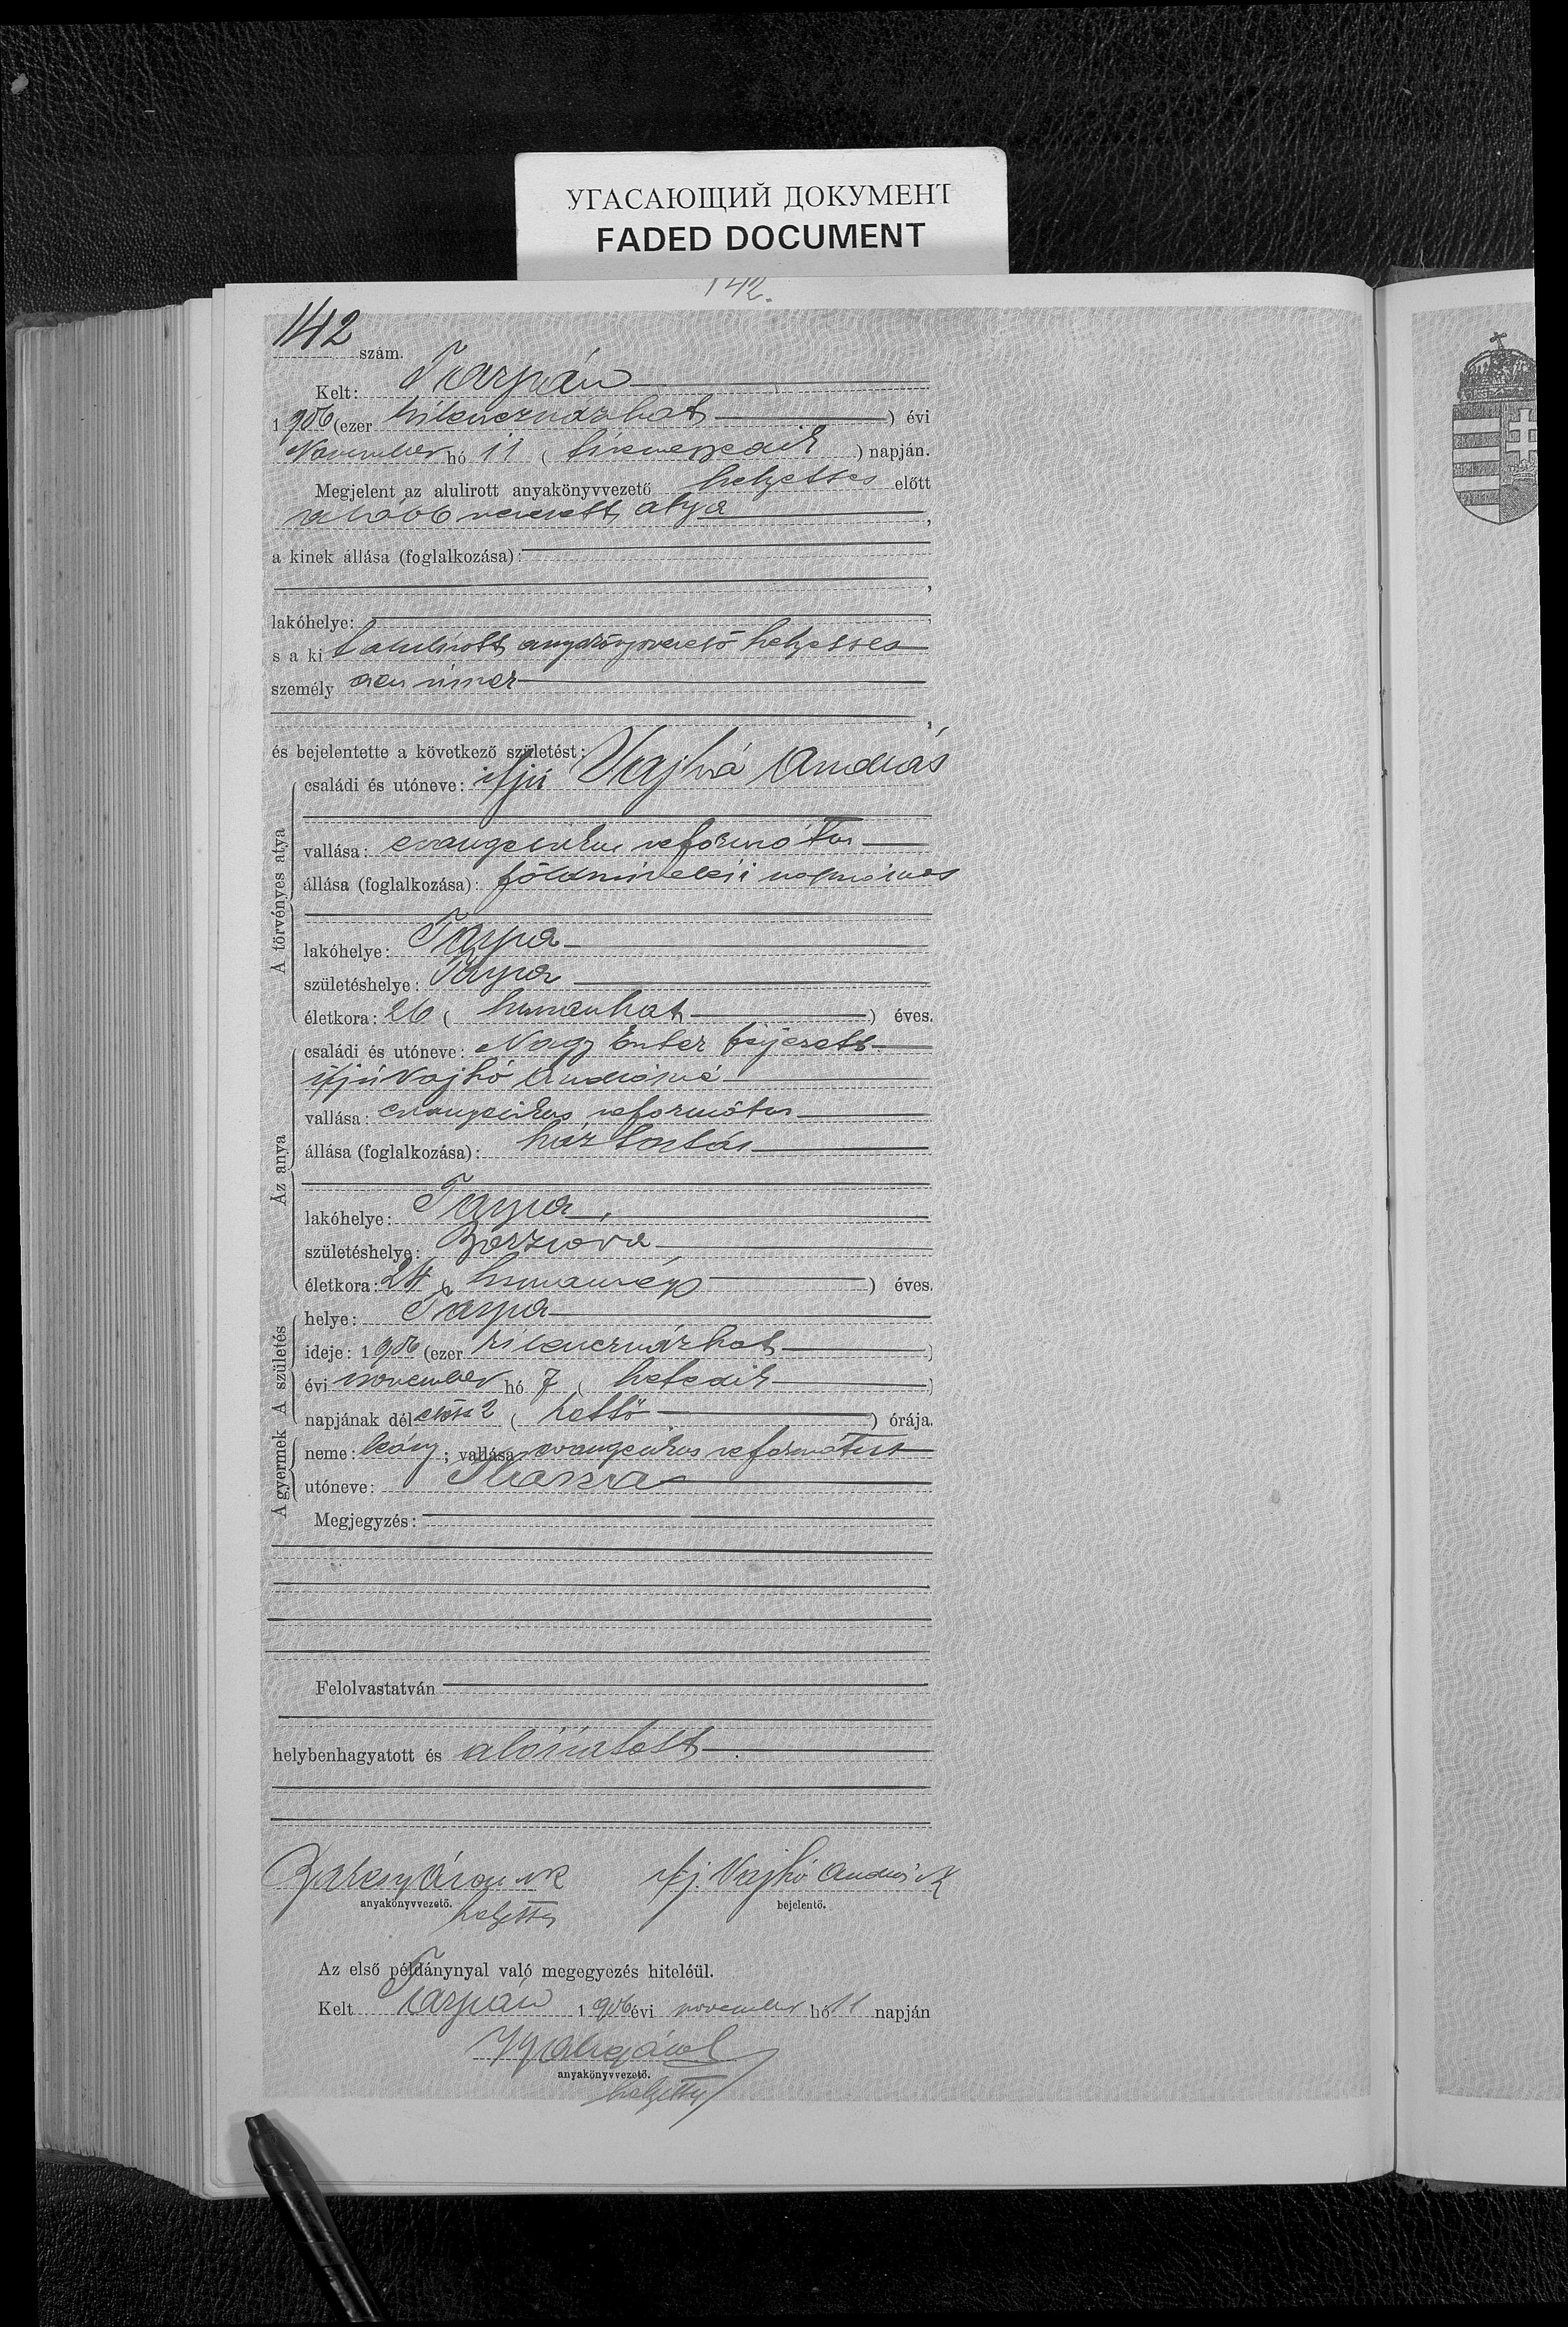 УГАСАЮЩИЙ ДОКУМЕНТ
FADED DOCUMENT
142.
142 szám.
Kelt: Tarpán
1906 (ezer kilenczszázhat) évi
November hó 11 (tizenegyedik) napján.
Megjelent az alulirott anyakönyvvezető helyettes előtt
alább nevezett atya,
a kinek állása (foglalkozása):
lakóhelye:
s a kit alulírott anyakönyvvezető helyettes
személyesen ismer
és bejelentette a következő születést:
A törvényes atya
családi és utóneve: ifjú Vajkó András
vallása: evangelikus református
állása (foglalkozása): földmivelési napszámos
lakóhelye: Tarpa
születéshelye: Tarpa
életkora: 26 (huszonhat) éves.
Az anya
családi és utóneve: Nagy Eszter férjezett
ifjú Vajkó Andrásné
vallása: evangelikus református
állása (foglalkozása): háztartás
lakóhelye: Tarpa
születéshelye:
életkora: 24 (huszonnégy) éves.
A születés
helye: Tarpa
ideje: 1906 (ezer kilenczszázhat)
évi november hó 7 (hetedik)
napjának délelőtt 2 (kettő) órája.
A gyermek
neme: leány; vallása: evangelikus református
utóneve:
Megjegyzés:
Felolvastatván
helybenhagyatott és aláiratott
anyakönyvvezető.
helyettes
ifj. Vajkó András
bejelentő.
Az első példánynyal való megegyezés hiteléül.
Kelt Tarpán 1906 évi november hó 11 napján
anyakönyvvezető.
helyettes